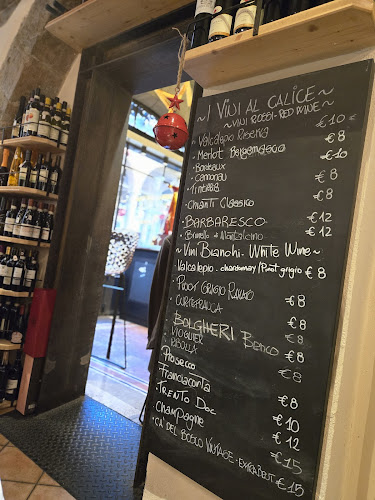 ~ I VINI AL CALICE ~
~ VINI ROSSI - RED WINE ~
- Valcalepio Riserva € 10
- Merlot Bergamasco € 8
- Bordeaux € 10
- Cannonau € 8
- Timorasso € 8
- Chianti Classico € 8
- BARBARESCO € 12
- Brunello di Montalcino € 12
~ Vini Bianchi - White Wine ~
Valcalepio - chardonnay/Pinot grigio € 8
Pinot GRIGIO RAMATO € 8
CURTEFRANCA € 8
BOLGHERI Bianco € 8
VIOGNIER € 8
RIBOLLA € 8
Prosecco € 8
Franciacorta € 10
TRENTO DOC € 12
Champagne € 15
- CA' DEL BOSCO VINTAGE - EXTRA BRUT € 15